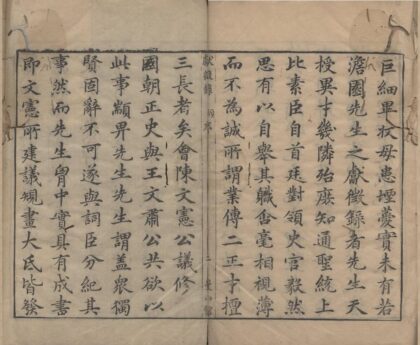 巨細畢收毋患堙蕪實未有若
澹園先生之獻徵錄者先生天
授異才幾隣殆庶知通聖統上
比素臣自首廷對領史官毅然
思有以自舉其職舍毫相視薄
而不為誠所謂業傳二正才擅
獻徵錄 序 二
三長者矣會陳文憲公議修
國朝正史與王文肅公共欲以
此事顓畀先生先生謂蓋衆獨
賢固辭不可遂與詞臣分紀其
事然而先生胷中實具有成書
即文憲所建議規畫大氐皆發